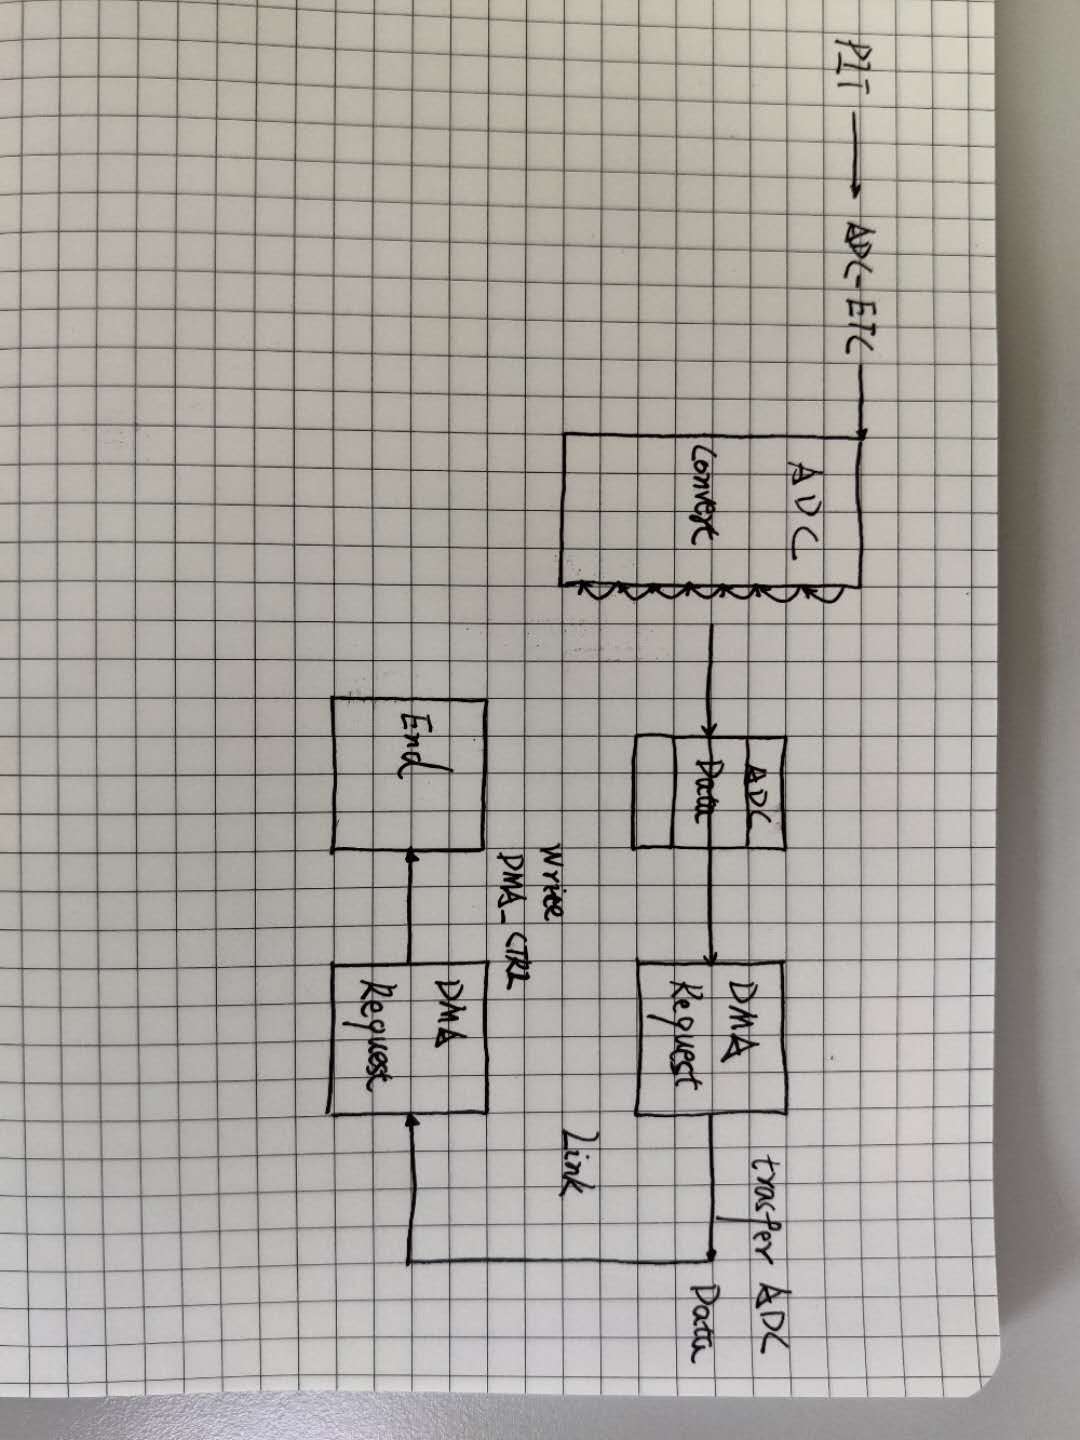 PIT
ADC-ETC
ADC
Convert
ADC
Data
DMA
Request
trasfer ADC
Data
Link
DMA
Request
Write
DMA_CTRL
End